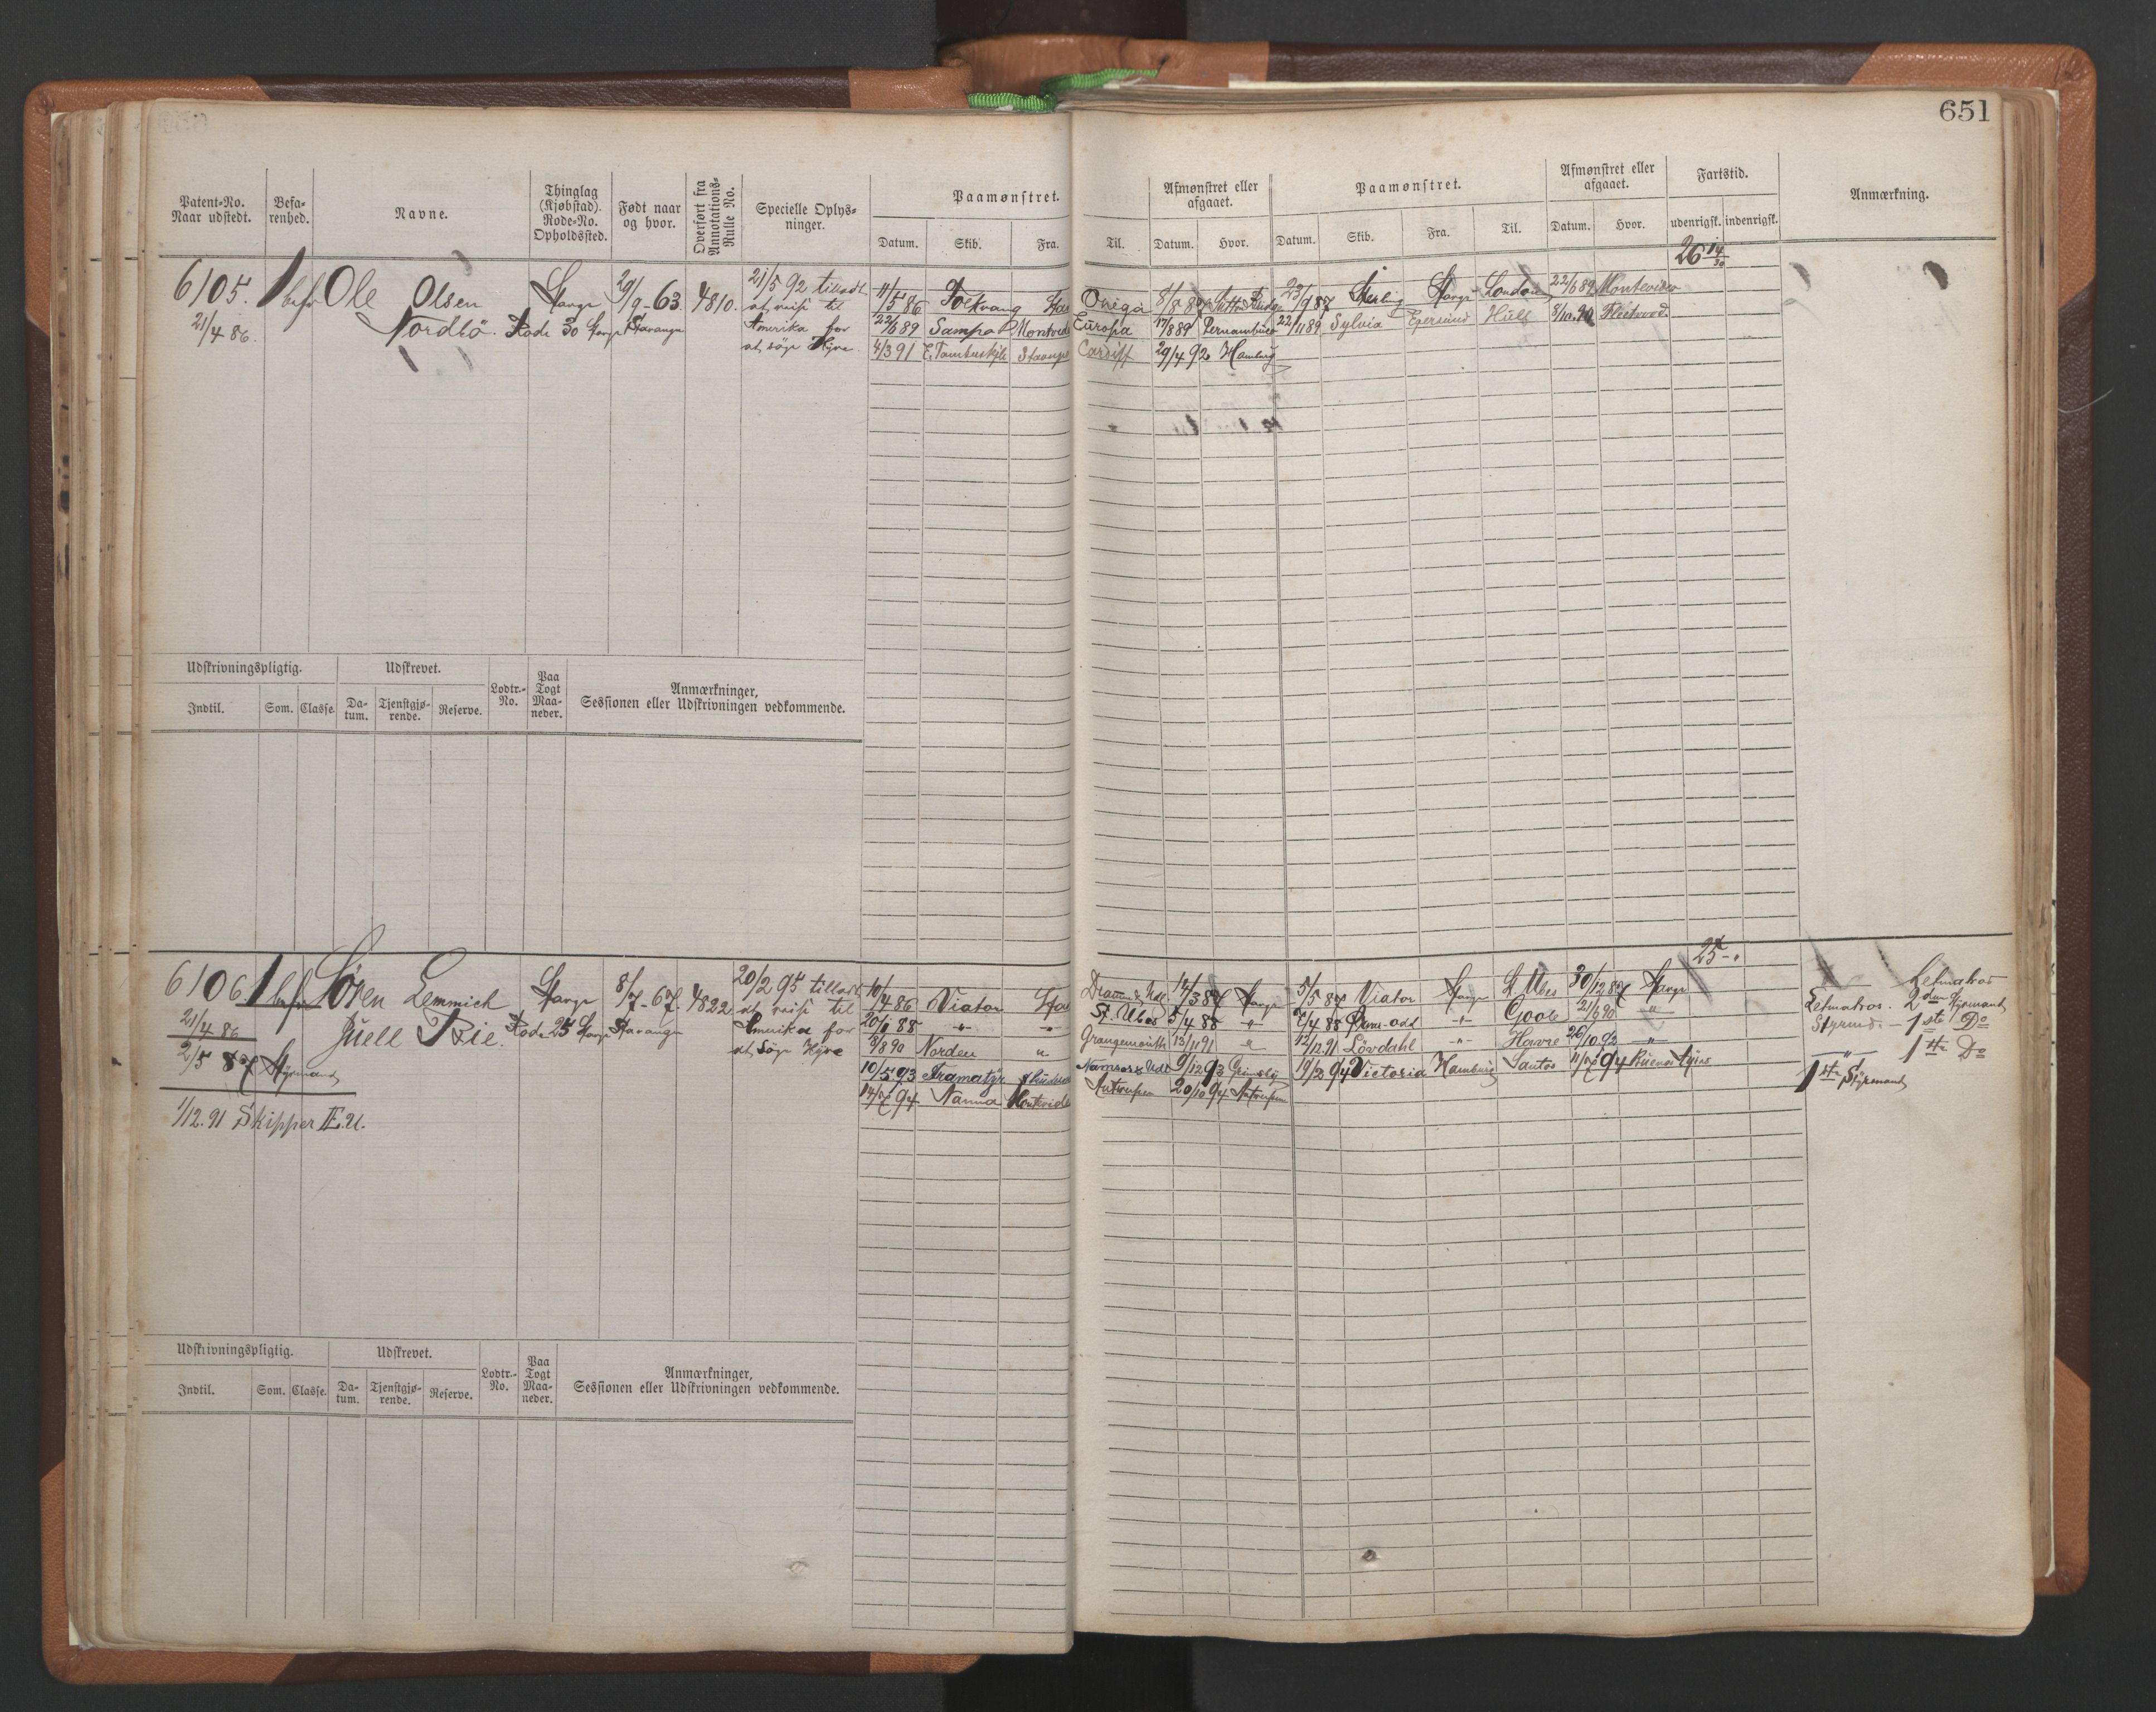 651
Patent-No. Naar udstedt. Befa-renhed. Navne. Thinglag (Kjøbstad). Rode-No. Opholdssted. Født naar og hvor. Overført fra Annotations-Rulle No. Specielle Oplys-ninger. Paamønstret. Datum. Skib. Fra. Til. Afmønstret eller afgaaet. Datum. Hvor. Paamønstret. Datum. Skib. Fra. Til. Afmønstret eller afgaaet. Datum. Hvor. Fartstid. udenrigsk. indenrigsk. Anmærkning.
26 14/30
6105. 1 bef Ole Olsen Stavgr 29/9-63 4810. 21/5 92 tilladt 11/5 86 Folkvang Sta Onega 8/8 87 23/9 87 Sterling Stavgr London 22/6 89 Montevideo
21/4 86. Nordbö. Rode 30 Stavgr Stavanger at reise til 22/6 89 Montevid Europa 17/8 89 Pernambuco 22/11 89 Sylvia Egersund Hull 8/10.90 Fleetwood.
Amerika for
at söge Hyre 4/3 91 Stavanger Cardiff 29/4 92 Hamburg
Udskrivningspligtig. Udskrevet. Lodtr.-No. Paa Togt Maa-neder. Anmærkninger, Sessionen eller Udskrivningen vedkommende.
Indtil. Som. Classe. Da-tum. Tjenstgjø-rende. Reserve.
25
6106 1 bef Sören Lemmich Stavgr 8/7-67. 4822 20/2 95 tilladt 10/4 86 Viator Sta 14/3 87 Stavgr 5/5 87 Viator Stavgr St Ubes 30/12 87 Stavgr Letmatros
21/4 86 Juell Rode 25 Stavgr Stavanger at reise til 20/1 88 -"- -"- St. Ubes 5/4 88 -"- 7/4 88 -"- Goole 21/6 90 -"- Letmatros. 2den Styrmand
2/5 87 Styrmand Amerika for 8/8 90 Norden " Grangemouth 13/11 91 " 12/12.91 Lövdahl -"- Havre 26/10.92 -"- Styrmd. - 1ste Do
at söge Hyre 10/5 93 9/12 93 Grimsby 19/2 94 Victoria Hamburg Santos 11/7 94 Buenos Ayres " 1ste Do
14/7 94 Nanna Montevide Antwerpen 20/10 94 Antwerpen 1ste Styrmand
1/12.91 Skipper E.U.
Udskrivningspligtig. Udskrevet. Lodtr.-No. Paa Togt Maa-neder. Anmærkninger, Sessionen eller Udskrivningen vedkommende.
Indtil. Som. Classe. Da-tum. Tjenstgjø-rende. Reserve.